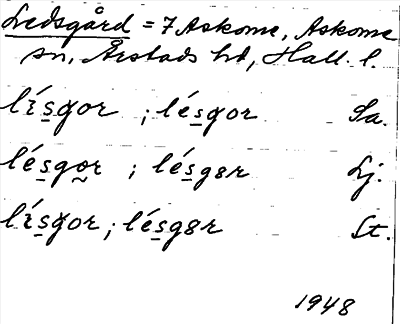 Ledsgård = 7 Askome, Askome
sn, Årstads hd, Hall. l.
lísgor ; lésgor Sa.
lésgor ; lésg8r Lj.
lísgor ; lésg8r St.
1948